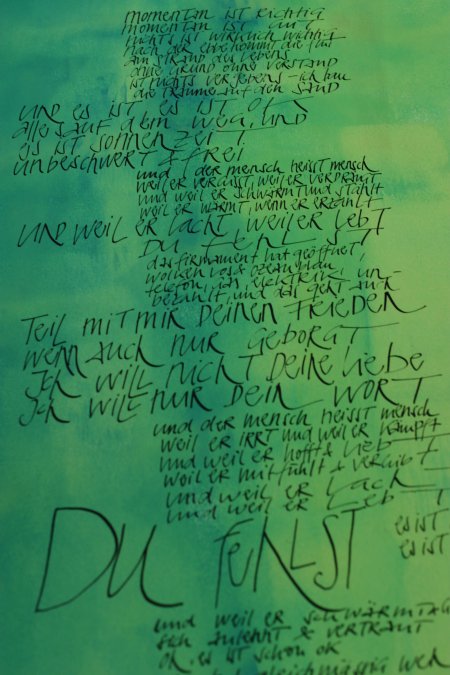 momentan ist richtig
momentan ist gut
nichts ist wirklich wichtig
nach der ebbe kommt die flut
am strand des lebens
ohne grund ohne verstand
ist nichts vergebens - ich bau
die träume auf den sand
und es ist, es ist ok
alles auf dem weg, und
es ist sonnenzeit
unbeschwert & frei
und der mensch heisst mensch
weil er vergisst, weil er verdrängt
und weil er schwärmt und stählt
weil er wärmt, wenn er erzählt
und weil er lacht, weil er lebt
du fehlst
das firmament hat geöffnet,
wolkenlos & ozeanblau
telefon, gas, elektrik, un-
bezahlt, und das geht auch
Teil mit mir deinen Frieden
wenn auch nur geborgt
Ich will nicht deine Liebe
Ich will nur dein Wort
und der mensch heisst mensch
weil er irrt und weil er kämpft
und weil er hofft & liebt
weil er mitfühlt & vergibt
und weil er lacht
und weil er lebt
DU FEHLST
es ist
es ist
und weil er schwärmt &
sich anlehnt & vertraut
ok, es ist schon ok
gleichmässig weh